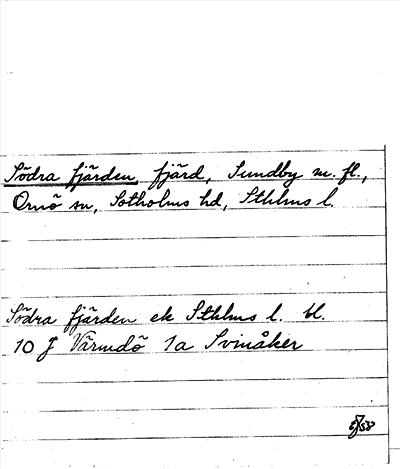 Södra fjärden, fjärd, Sundby m. fl.,
Ornö sn, Sotholms hd, Sthlms l.
Södra fjärden ek Sthlms l. bl.
10 J Värmdö 1a Svinåker